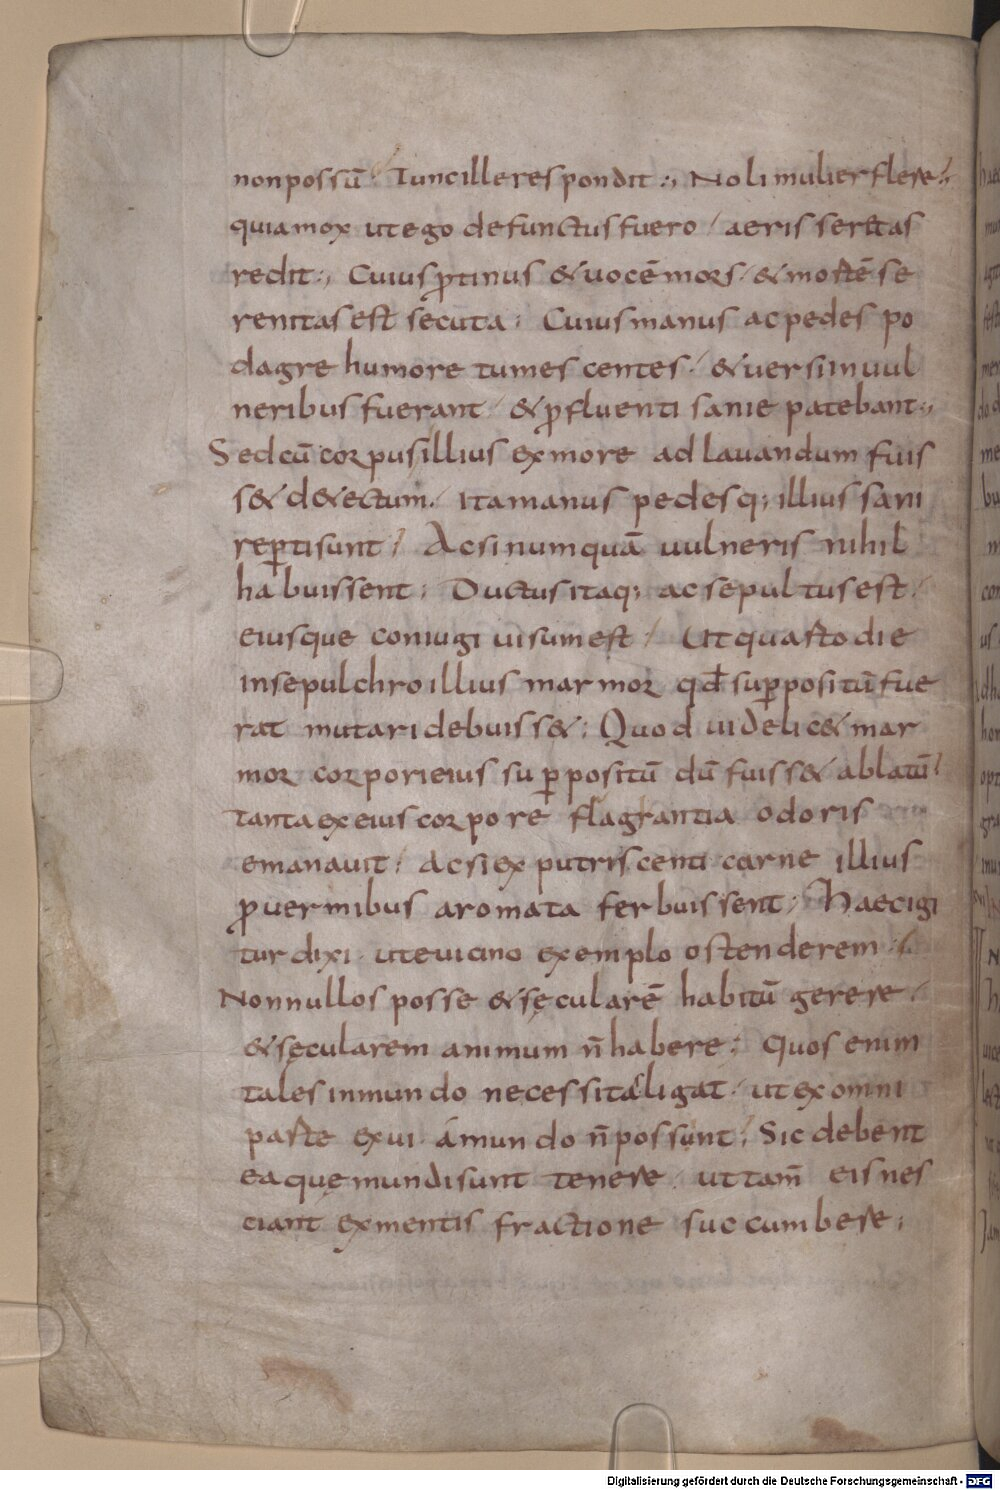 non possū Tunc ille respondit ; Noli mulier flere
quia mox ut ego defunctus fuero / aeris serenitas
redit ; Cuius ꝓtinus & uocē mors & mortē se
renitas est secuta ; Cuius manus ac pedes po
dagre humore tumescentes / & uersi in uul
neribus fuerant / & ꝓfluenti sanie patebant ;
Sed cū corpus illius ex more ad lauandum fuis
s& d&ectum / Ita manus pedesq; illius sani
rep̄ti sunt / Ac si numquā uulneris nihil
habuissent ; Ductus itaq; ac sepultus est /
eiusque coniugi uisum est / Ut quarto die
in sepulchro illius marmor qđ sup̄positū fue
rat mutari debuiss& ; Quod uidelic& mar
mor corpori eius sup̄positū dū fuiss& ablatū
tanta ex eius corpore flagrantia odoris
emanauit ; Ac si ex putriscenti carne illius
ꝓ uermibus aromata ferbuissent ; Haec igi
tur dixi ut e uicino exemplo ostenderem
Nonnullos posse & sęcularē habitū gerere
& sęcularem animum n̄ habere ; Quos enim
tales in mundo necessitas ligat / ut ex omni
parte exui a mundo n̄ possunt ; Sic debent
ea que mundi sunt tenere ut tam̄ eis nes
ciant ex mentis fractione succumbere ;
Digitalisierung gefördert durch die Deutsche Forschungsgemeinschaft - DFG